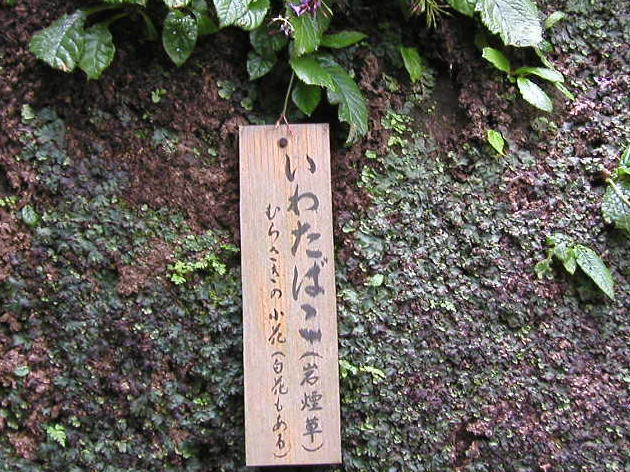 いわたばこ(岩煙草)
むらさきの小花(白花もある)